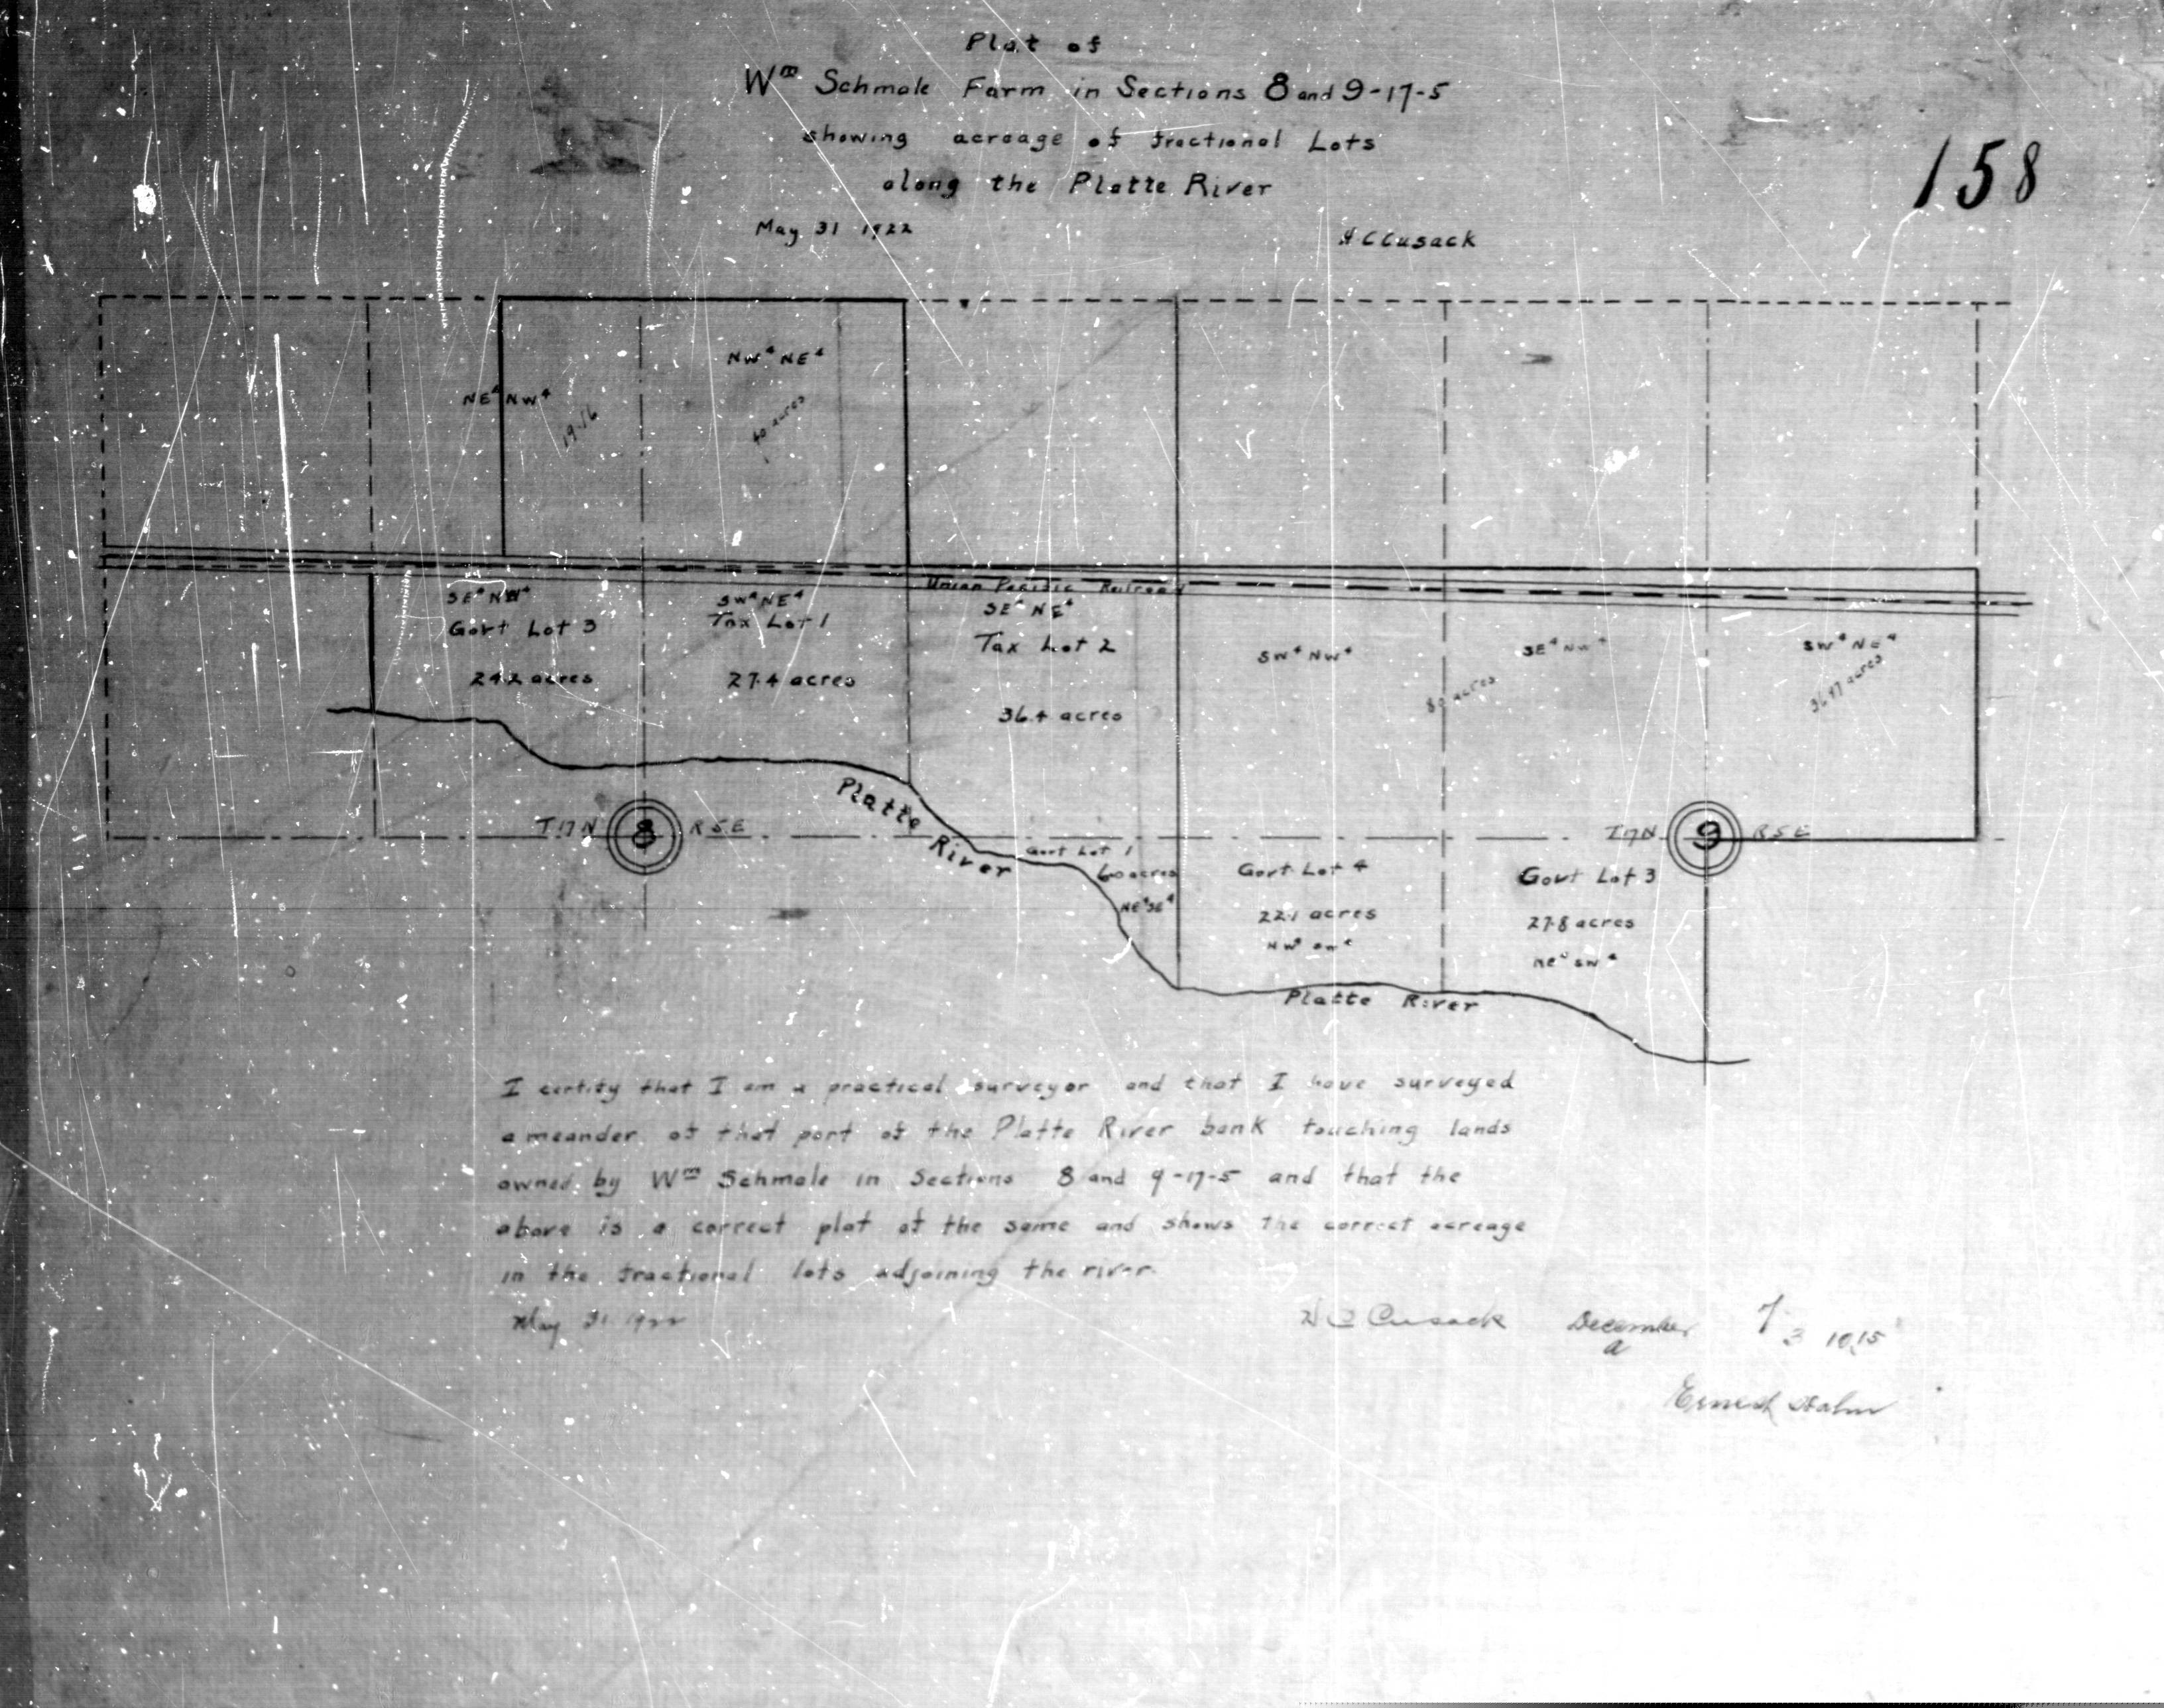 Plat of
Wm Schmale Farm in Sections 8 and 9-17-5
showing acreage of fractional Lots
along the Platte River
158
May 31 1922
H C Cusack
NW4 NE4
NE4 NW4
19.16
40 acres
Union Pacific Railroad
SE4 NW4
Govt Lot 3
24.2 acres
SW4 NE4
Tax Lot 1
27.4 acres
SE4 NE4
Tax Lot 2
36.4 acres
SW4 NW4
SE4 NW4
80 acres
SW4 NE4
36.97 acres
Platte River
T17N 8 R5E
T17N 9 R5E
Govt Lot 1
6.0 acres
NE4 SE4
Govt Lot 4
22.1 acres
NW4 SW4
Govt Lot 3
27.8 acres
NE4 SW4
Platte River
I certify that I am a practical surveyor and that I have surveyed
a meander of that part of the Platte River bank touching lands
owned by Wm Schmale in Sections 8 and 9-17-5 and that the
above is a correct plat of the same and shows the correct acreage
in the fractional lots adjoining the river.
May 31 1922
H C Cusack
December 7
3 10,15
a
Ernest Hahn